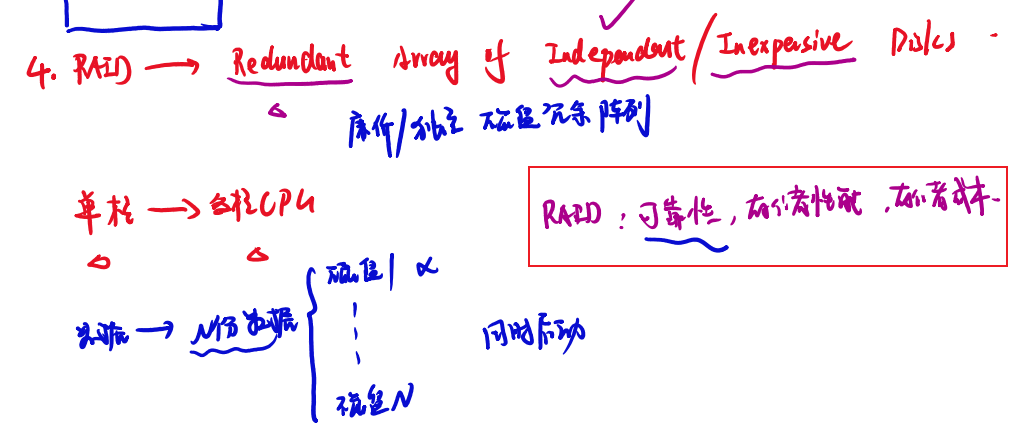 4. RAID → Redundant Array of Independent/Inexpensive Disks
廉价/独立 磁盘冗余阵列
单核 → 多核CPU
RAID：可靠性，存储性能，存储成本
数据 → N份数据
磁盘1
同时启动
磁盘N